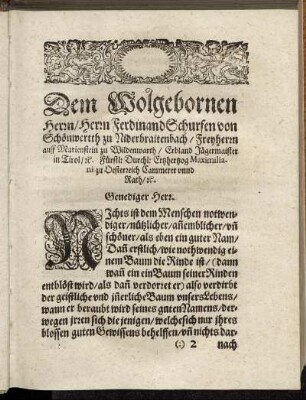 Dem Wolgebornen
Herrn/Herrn Ferdinand Schurfen von
Schönwertth zu Niderbraitenbach/Freyherrn
auff Marienstein zu Wildenwarth/Erbland Jägermaister
in Tirol/ꝛc. Fürstl: Durchl: Ertzhertzog Maximilia-
ni zu Oesterreich Cammerer vnnd
Rath/ꝛc.
Genediger Herr.
NIchts ist dem Menschen notwen-
diger/nützlicher/añemblicher/vñ
schöner/als eben ein guter Nam/
Dañ erstlich/wie nothwendig ei-
nem Baum die Rinde ist/(dann
wañ ein ein Baum seiner Rinden
entblöst wird/als dañ verdorret er) also verdirbt
der geistliche vnd jñerliche Baum vnsers Lebens/
wann er beraubt wird seines guten Namens/der-
wegen jrren sich die jenigen/welche sich nur jhres
blossen guten Gewissens behelffen/vñ nichts dar-
(:) 2 nach